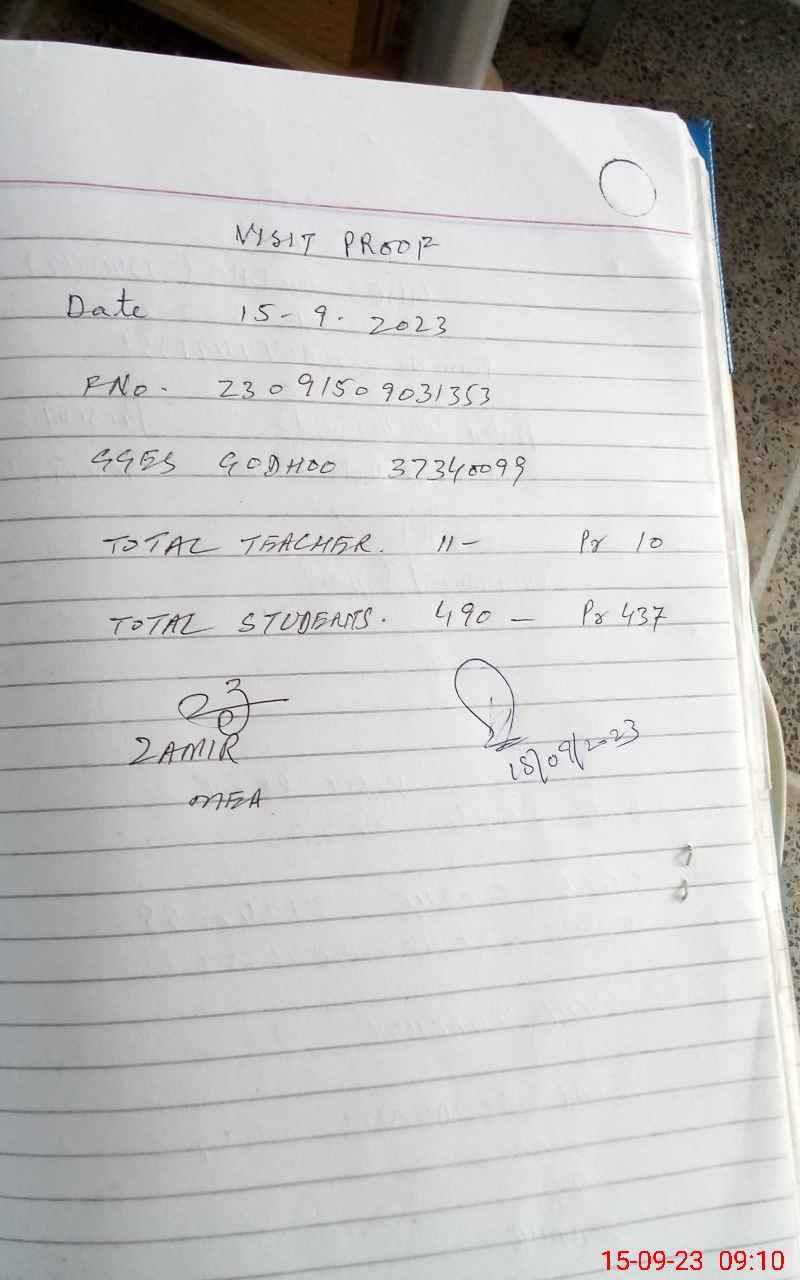 VISIT PROOF
Date 15-9-2023
FNo. 23091509031353
GGES GODHOO 37340099
TOTAL TEACHER. 11- Pr 10
TOTAL STUDENTS. 490 - Pr 437
ZAMIR
MEA
15/09/2023
15-09-23 09:10